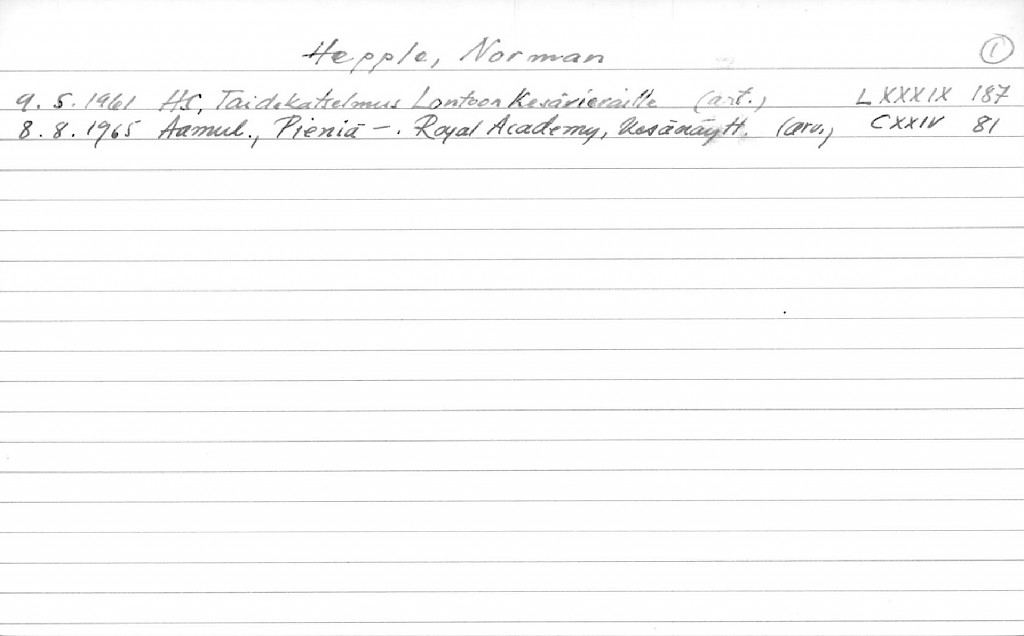 Hepple, Norman 1
9. 5. 1961 HS, Taidekatselmus Lontoon Kesävieraille (art.) LXXXIX 187
8. 8. 1965 Aamul., Pieniä -. Royal Academy, Kesänäytt. (arv.) CXXIV 81